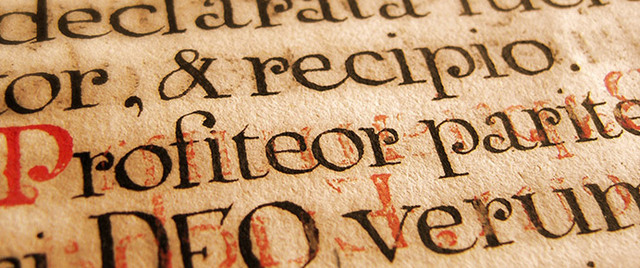 declarata fuer
tor, & recipio.
Profiteor parite
DEO verum